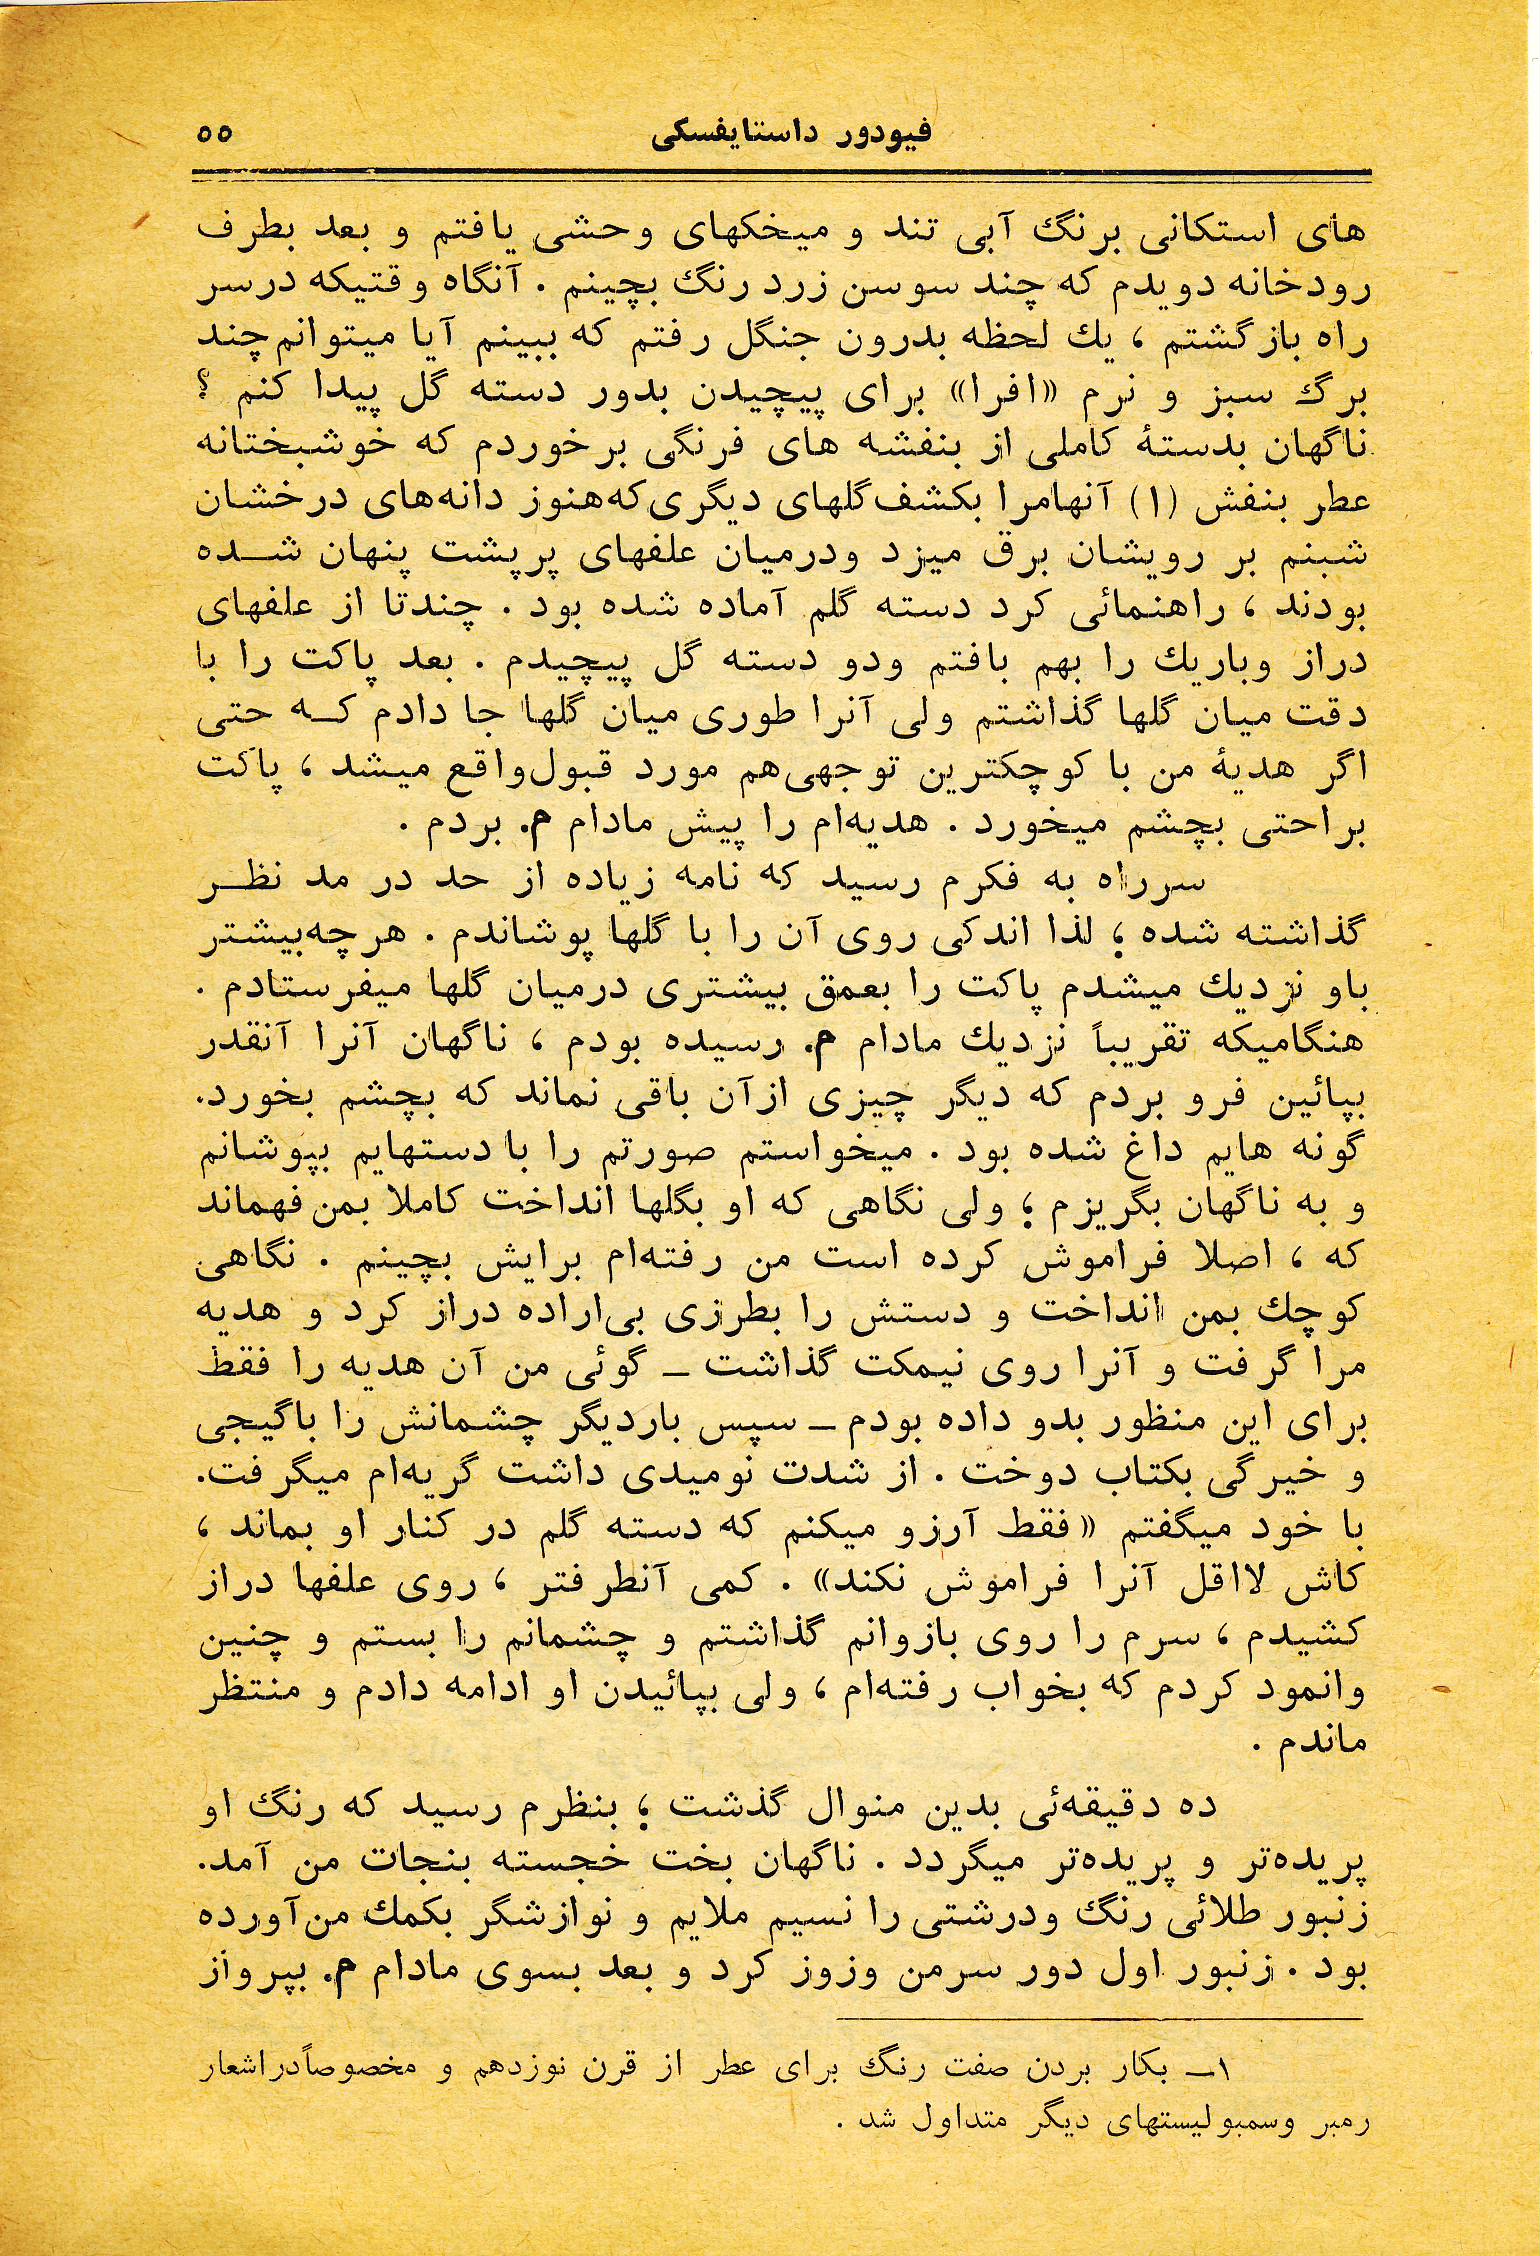 فیودور داستایفسکی ۵۵
های استکانی برنگ آبی تند و میخکهای وحشی یافتم و بعد بطرف
رودخانه دویدم که چند سوسن زرد رنگ بچینم . آنگاه وقتیکه درسر
راه بازگشتم ، یك لحظه بدرون جنگل رفتم که ببینم آیا میتوانم چند
برگ سبز و نرم «افرا» برای پیچیدن بدور دسته گل پیدا کنم ؟
ناگهان بدستهٔ کاملی از بنفشه های فرنگی برخوردم که خوشبختانه
عطر بنفش (۱) آنهامرا بکشف گلهای دیگری که هنوز دانه‌های درخشان
شبنم بر رویشان برق میزد ودرمیان علفهای پرپشت پنهان شده
بودند ، راهنمائی کرد دسته گلم آماده شده بود . چندتا از علفهای
دراز وباریك را بهم بافتم ودو دسته گل پیچیدم . بعد پاکت را با
دقت میان گلها گذاشتم ولی آنرا طوری میان گلها جا دادم که حتی
اگر هدیهٔ من با کوچکترین توجهی هم مورد قبول واقع میشد ، پاکت
براحتی بچشم میخورد . هدیه‌ام را پیش مادام م. بردم .
سرراه به فکرم رسید که نامه زیاده از حد در مد نظر
گذاشته شده ؛ لذا اندکی روی آن را با گلها پوشاندم . هرچه‌بیشتر
باو نزدیك میشدم پاکت را بعمق بیشتری درمیان گلها میفرستادم .
هنگامیکه تقریباً نزدیك مادام م. رسیده بودم ، ناگهان آنرا آنقدر
بپائین فرو بردم که دیگر چیزی ازآن باقی نماند که بچشم بخورد.
گونه هایم داغ شده بود . میخواستم صورتم را با دستهایم بپوشانم
و به ناگهان بگریزم ؛ ولی نگاهی که او بگلها انداخت کاملا بمن فهماند
که ، اصلا فراموش کرده است من رفته‌ام برایش بچینم . نگاهی
کوچك بمن انداخت و دستش را بطرزی بی‌اراده دراز کرد و هدیه
مرا گرفت و آنرا روی نیمکت گذاشت ـ گوئی من آن هدیه را فقط
برای این منظور بدو داده بودم ـ سپس باردیگر چشمانش را باگیجی
و خیرگی بکتاب دوخت . از شدت نومیدی داشت گریه‌ام میگرفت.
با خود میگفتم «فقط آرزو میکنم که دسته گلم در کنار او بماند ،
کاش لااقل آنرا فراموش نکند» . کمی آنطرفتر ، روی علفها دراز
کشیدم ، سرم را روی بازوانم گذاشتم و چشمانم را بستم و چنین
وانمود کردم که بخواب رفته‌ام ، ولی بپائیدن او ادامه دادم و منتظر
ماندم .
ده دقیقه‌ئی بدین منوال گذشت ؛ بنظرم رسید که رنگ او
پریده‌تر و پریده‌تر میگردد . ناگهان بخت خجسته بنجات من آمد.
زنبور طلائی رنگ ودرشتی را نسیم ملایم و نوازشگر بکمك من آورده
بود . زنبور اول دور سرمن وزوز کرد و بعد بسوی مادام م. بپرواز
۱ـ بکار بردن صفت رنگ برای عطر از قرن نوزدهم و مخصوصاً دراشعار
رمبر وسمبولیستهای دیگر متداول شد .